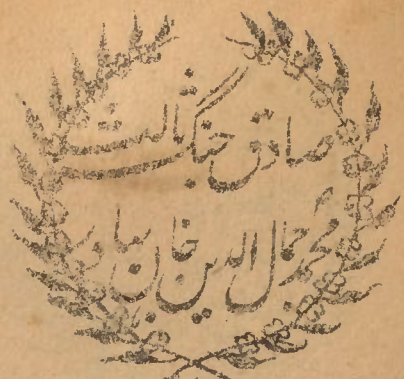 صادق جنگ ثالث
محمد جمال الدین خان بہادر